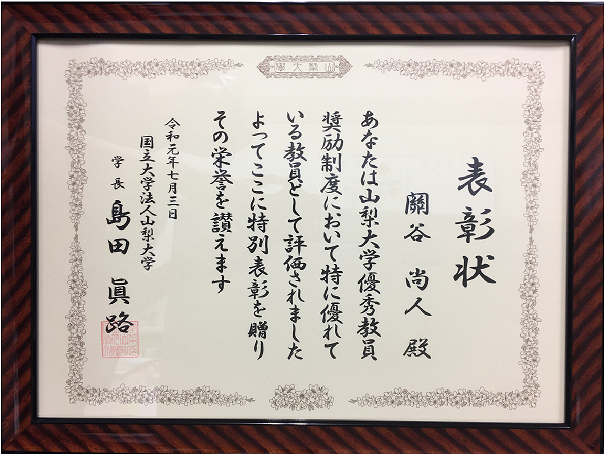 學大梨山
表彰状
關谷 尚人 殿
あなたは山梨大学優秀教員
奨励制度において特に優れて
いる教員として評価されました
よってここに特別表彰を贈り
その栄誉を讃えます
令和元年七月三日
国立大学法人山梨大学
学長 島田 眞路